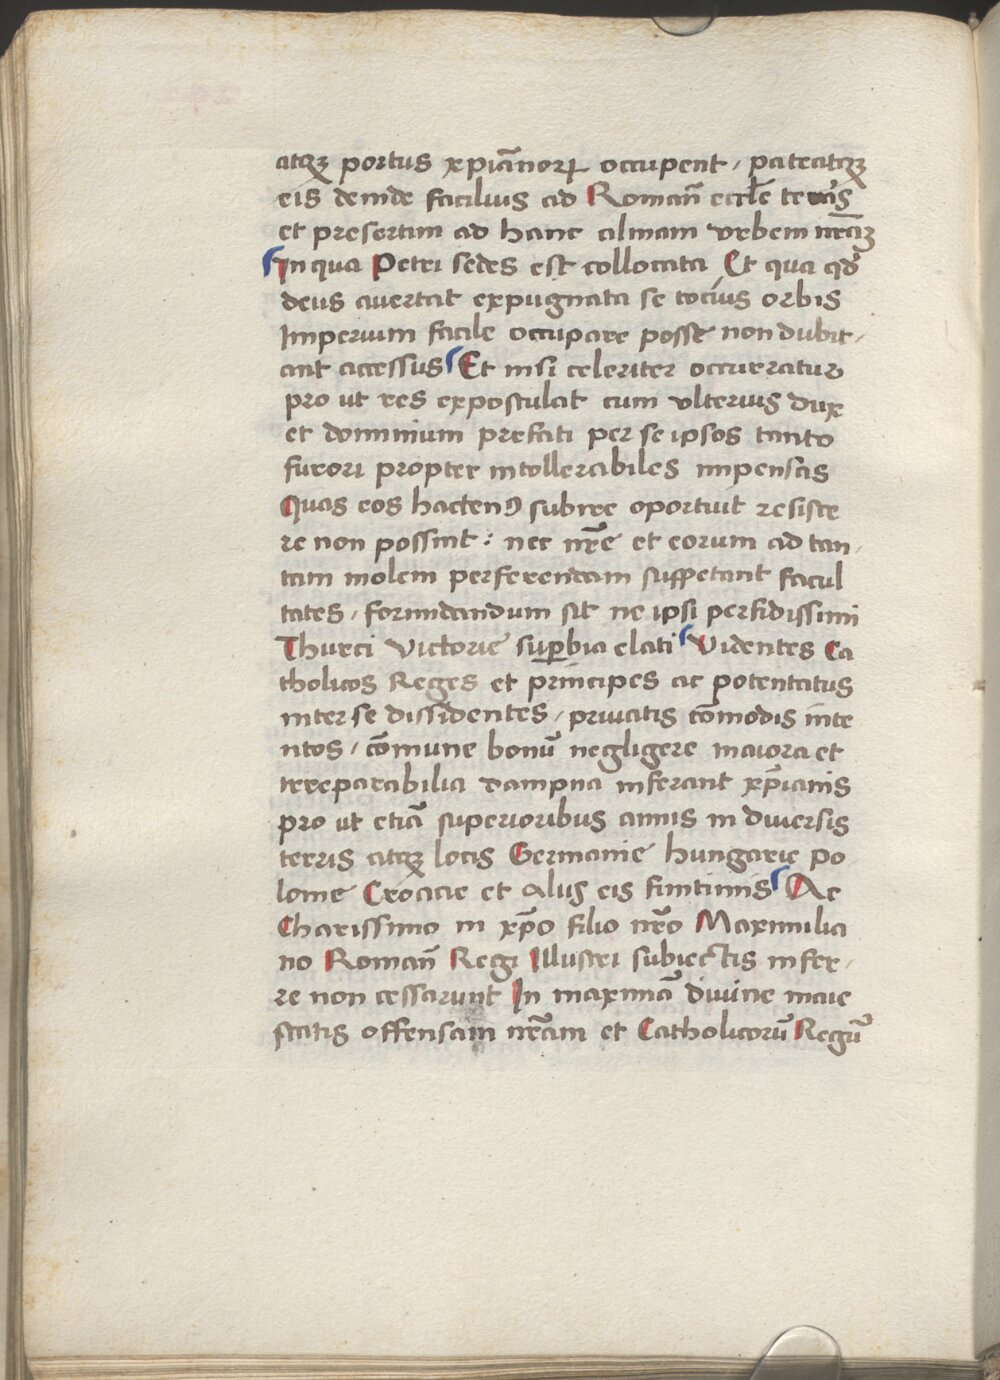 atqꝫ portus xp̄ianorꝝ occupent / pateatqꝫ
eis deinde facilius ad Roman̄ eccl̄ie terras
et presertim ad hanc almam vrbem nr̄aꝫ
In qua Petri sedes est collocata Et qua qd̄
deus auertat expugnata se tocius orbis
Imperium facile occupare posse non dubit /
ant accessus Et nisi celeriter occurratur
pro ut res expostulat cum vlterius dux
et dominium prefati per se ipsos tanto
furori propter intollerabiles impensas
Quas eos hactenꝯ subire oportuit resiste
re non possint : nec nr̄e et eorum ad tan /
tam molem perferendam suppetant facul
tates / formidandum sit ne ipsi perfidissimi
Thurci victorie suꝑbia elati Videntes Ca
tholicos Reges et principes ac potentatus
inter se dissidentes / priuatis cōmodis inte
ntos / cōmune bonū negligere maiora et
irreparabilia dampna inferant xp̄ianis
pro ut etiā superioribus annis in diuersis
terris atqꝫ locis Germanie hungarie po
lonie Croacie et alijs eis finitimis Ac
Charissimo in xp̄o filio nr̄o Maximilia
no Roman̄ Regi Illustri subiectis infer /
re non cessarunt In maximā diuine maie
statis offensam nr̄am et Catholicorū Regū